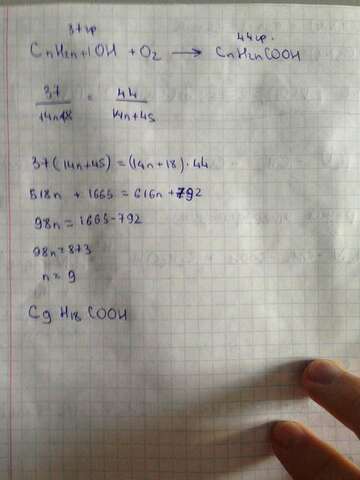 37гр 44гр.
CnH2n+1OH + O2 → CnH2nCOOH
37/14n+18 = 44/14n+45
37(14n+45)=(14n+18)·44
518n + 1665 = 616n+792
98n = 1665-792
98n=873
n=9
C9 H18 COOH